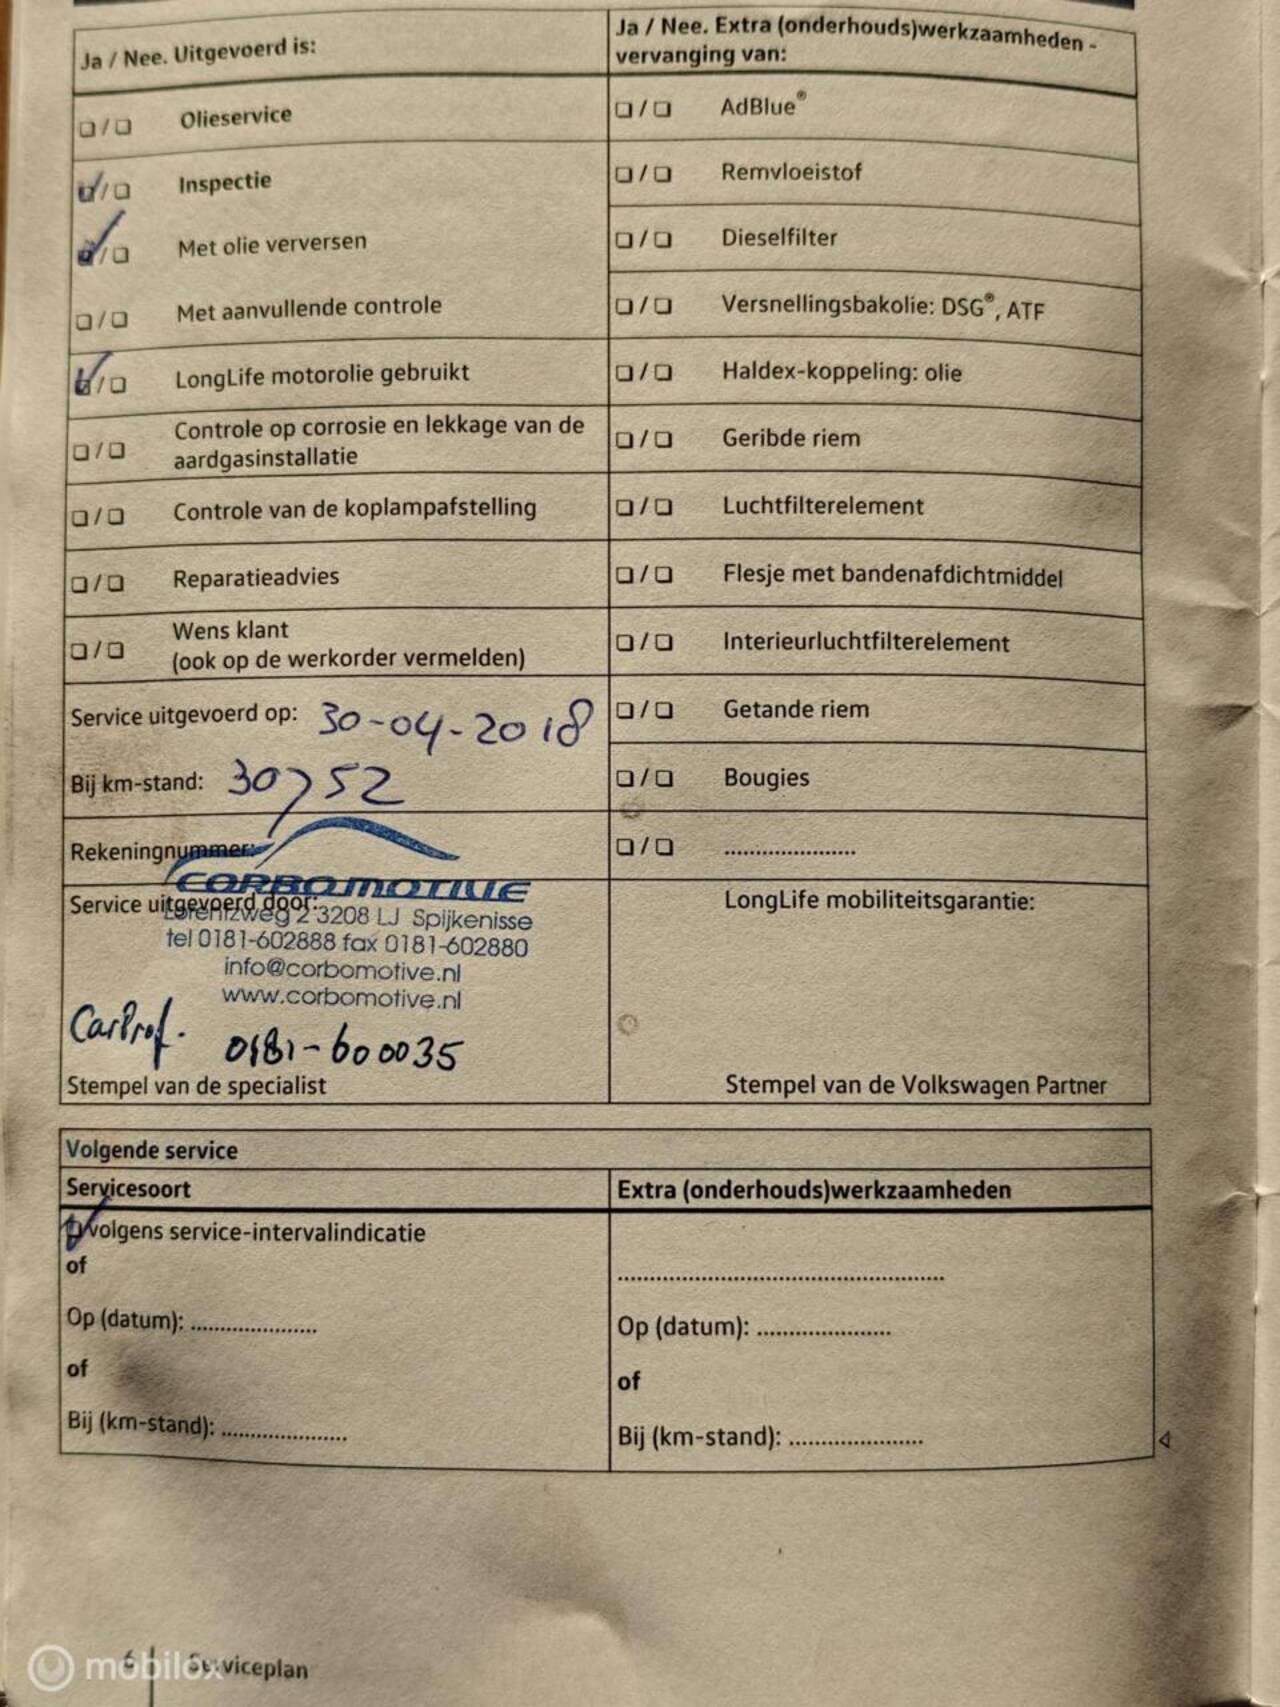 Ja / Nee. Uitgevoerd is:
❏ / ❏ Olieservice
❏ / ❏ Inspectie
❏ / ❏ Met olie verversen
❏ / ❏ Met aanvullende controle
❏ / ❏ LongLife motorolie gebruikt
❏ / ❏ Controle op corrosie en lekkage van de
aardgasinstallatie
❏ / ❏ Controle van de koplampafstelling
❏ / ❏ Reparatieadvies
❏ / ❏ Wens klant
(ook op de werkorder vermelden)
Service uitgevoerd op: 30-04-2018
Bij km-stand: 30752
Rekeningnummer:
CORBOMOTIVE
Service uitgevoerd door:
Lorentzweg 2 3208 LJ Spijkenisse
tel 0181-602888 fax 0181-602880
info@corbomotive.nl
www.corbomotive.nl
CarProf. 0181-600035
Stempel van de specialist
Ja / Nee. Extra (onderhouds)werkzaamheden -
vervanging van:
❏ / ❏ AdBlue®
❏ / ❏ Remvloeistof
❏ / ❏ Dieselfilter
❏ / ❏ Versnellingsbakolie: DSG®, ATF
❏ / ❏ Haldex-koppeling: olie
❏ / ❏ Geribde riem
❏ / ❏ Luchtfilterelement
❏ / ❏ Flesje met bandenafdichtmiddel
❏ / ❏ Interieurluchtfilterelement
❏ / ❏ Getande riem
❏ / ❏ Bougies
❏ / ❏ .....................
LongLife mobiliteitsgarantie:
Stempel van de Volkswagen Partner
Volgende service
Servicesoort
❏ volgens service-intervalindicatie
of
Op (datum): ....................
of
Bij (km-stand): ....................
Extra (onderhouds)werkzaamheden
....................................................
Op (datum): .....................
of
Bij (km-stand): .....................
6 Serviceplan
mobilox